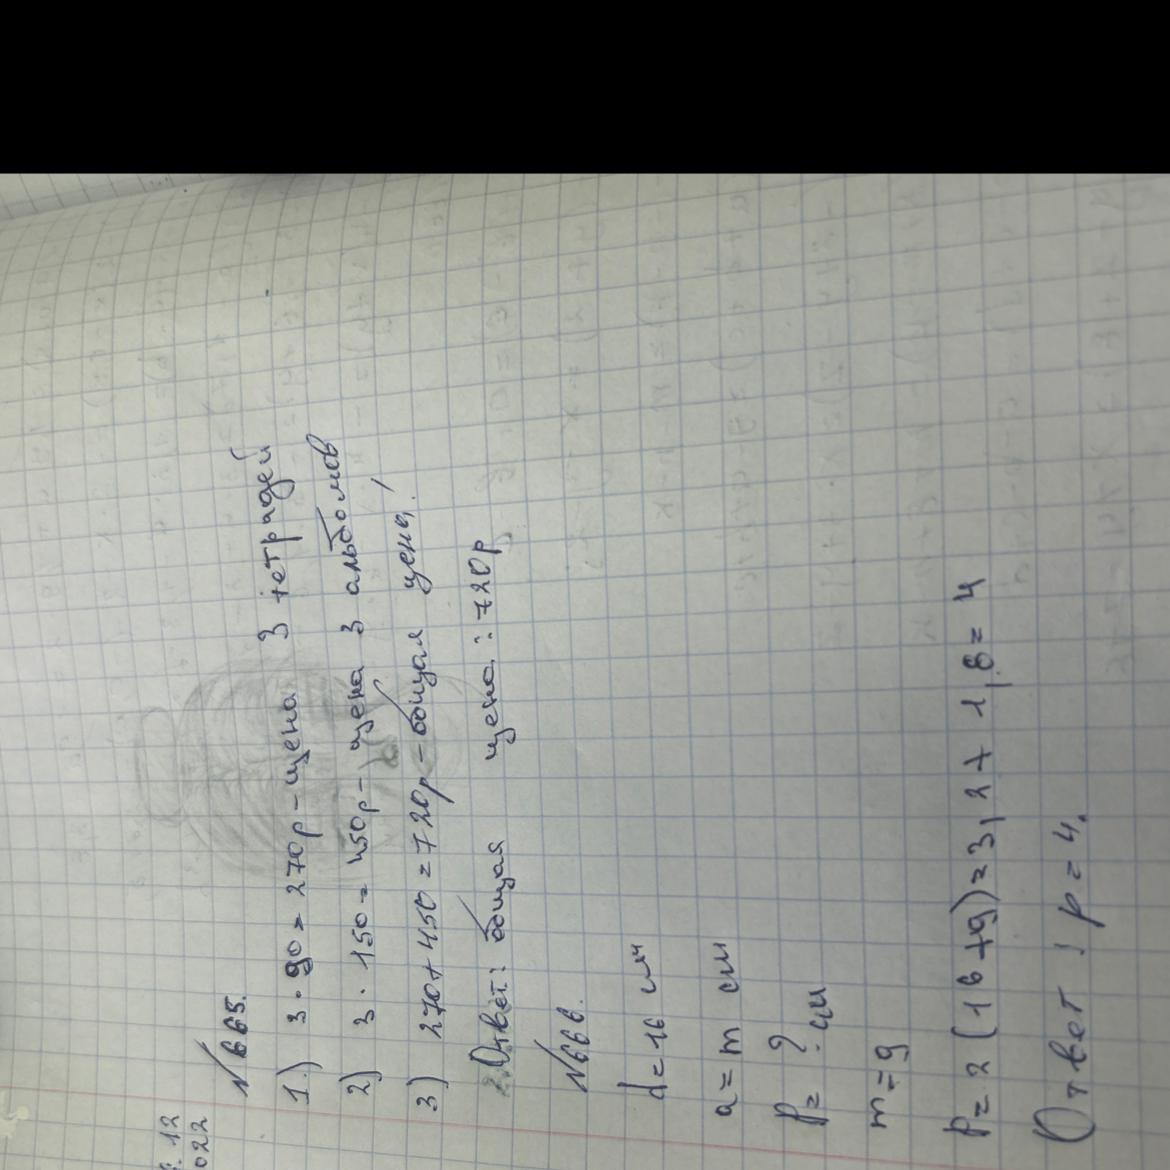 . 12
022
№ 665.
1) 3 · 90 = 270р - цена 3 тетрадей
2) 3 · 150 = 450р - цена 3 альбомов
3) 270 + 450 = 720р - общая цена!
Ответ: общая цена: 720р
№ 666.
d = 16 см
a = m см
P = ? см
m = 9
P = 2 (16 + 9) = 3,2 + 1,8 = 4
Ответ: p = 4.